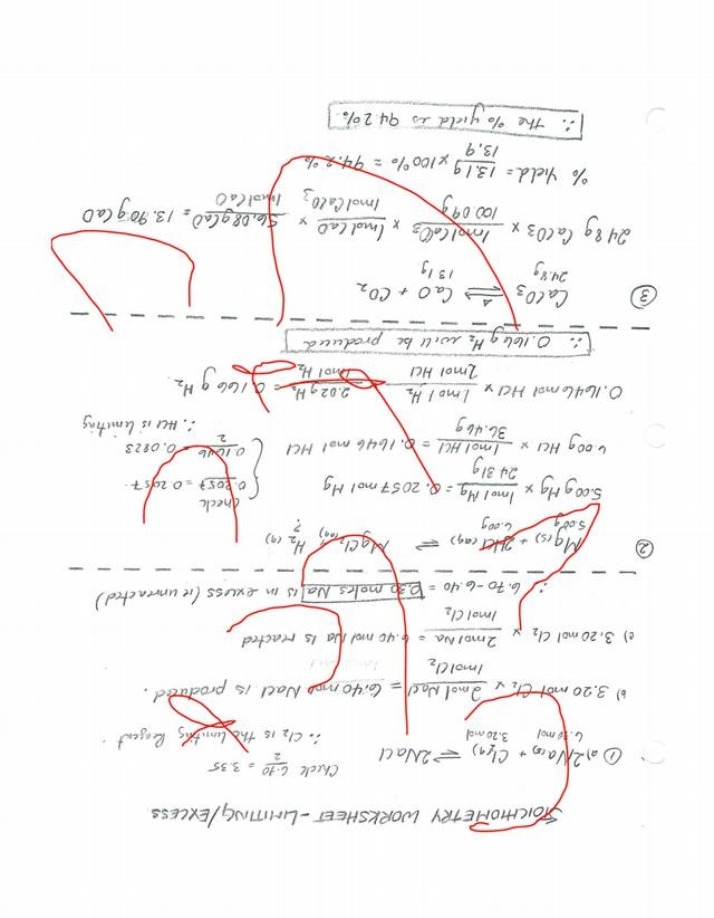 STOICHIOMETRY WORKSHEET - LIMITING/EXCESS
① a) 2Na(s) + Cl₂(g) ⇌ 2NaCl
6.70 mol 3.20 mol
Check 6.70/2 = 3.35
∴ Cl₂ is the limiting Reagent.
b) 3.20 mol Cl₂ × 2mol NaCl/1mol Cl₂ = 6.40 mol NaCl is produced.
c) 3.20 mol Cl₂ × 2mol Na/1mol Cl₂ = 6.40 mol Na is reacted
∴ 6.70-6.40 = 0.30 moles Na is in excess (it unreacted)
② Mg(s) + 2HCl(aq) ⇌ MgCl₂(aq) H₂(g)
5.00g 6.00g ?
5.00g Mg × 1mol Mg/24.31g = 0.2057 mol Mg
6.00g HCl × 1mol HCl/36.46g = 0.1646 mol HCl
check
0.2057 = 0.2057
0.1646/2 = 0.0823
∴ HCl is limiting
0.1646 mol HCl × 1mol H₂/2mol HCl 2.02g H₂/1mol H₂ = 0.166 g H₂
∴ 0.166 g H₂ will be produced
③ CaCO₃ ⇌ CaO + CO₂
24.8g Δ 13.1g
24.8g CaCO₃ × 1molCaCO₃/100.09g × 1molCaO/1molCaCO₃ × 56.08gCaO/1molCaO = 13.90g CaO
% Yield = 13.1g/13.9 × 100% = 94.2%
∴ the % yield is 94.2%.